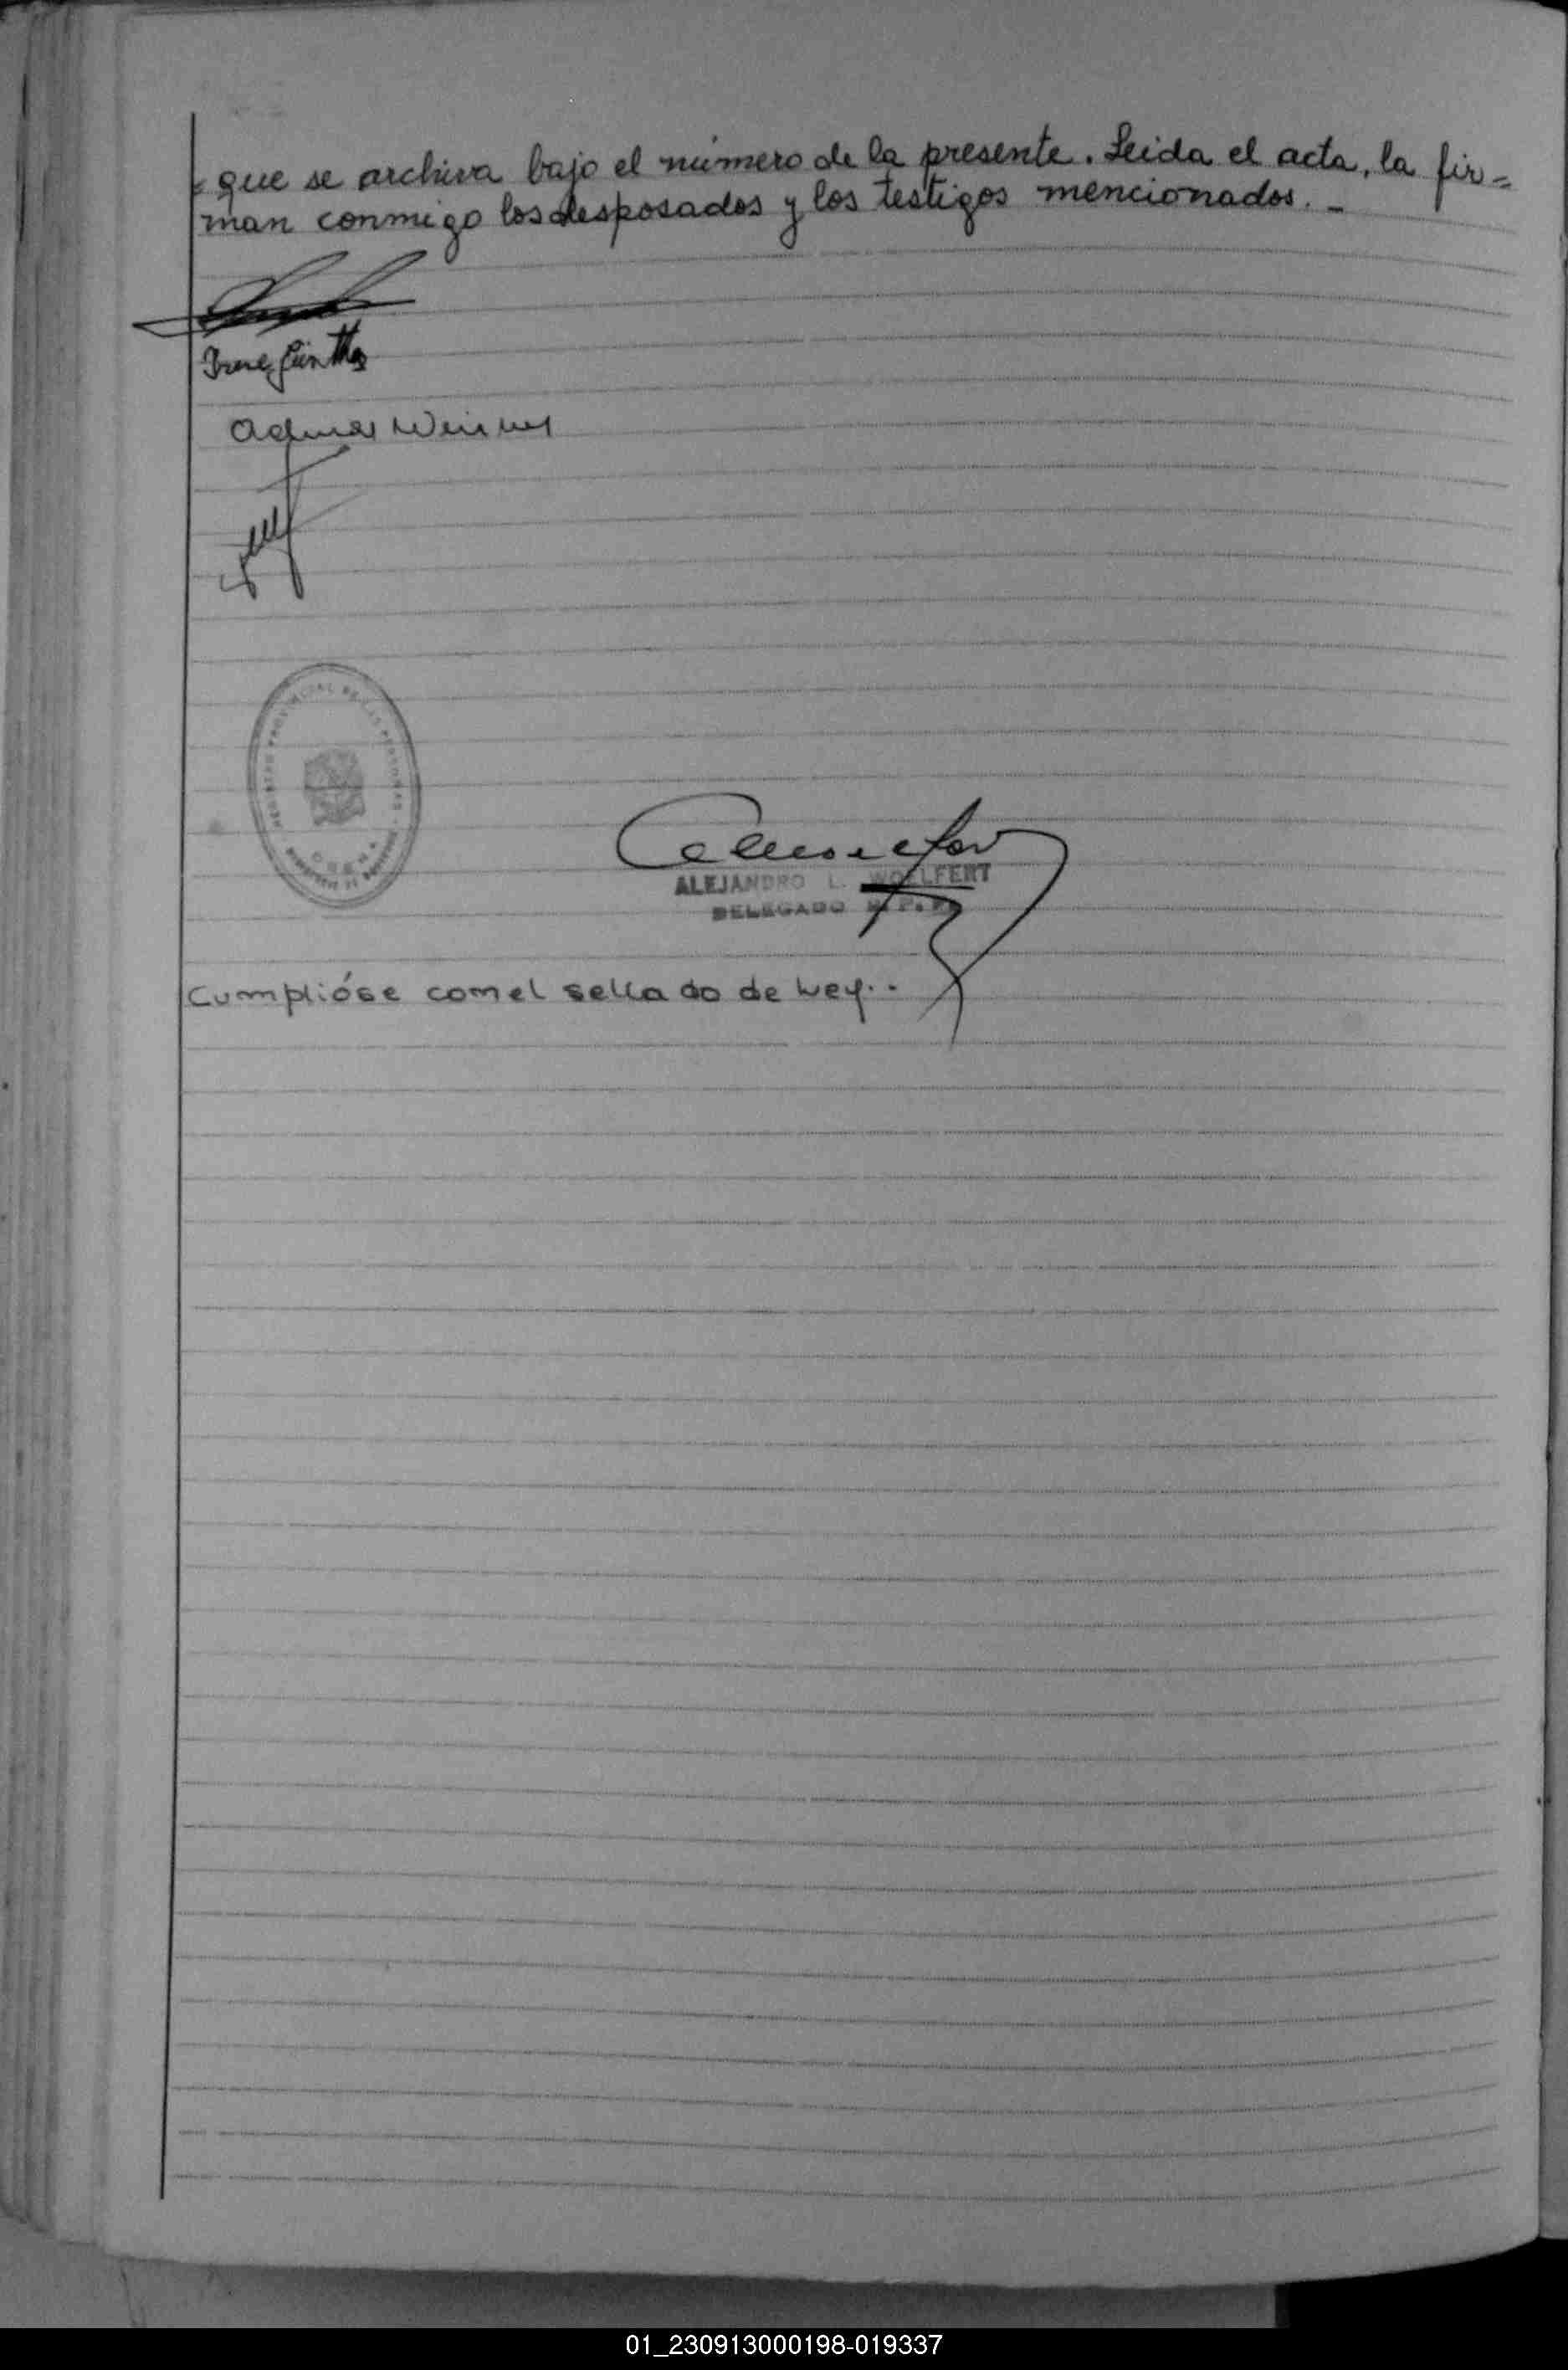 = que se archiva bajo el número de la presente. Leida el acta, la fir=
man conmigo los desposados y los testigos mencionados. _
Irene Günther
REGISTRO PROVINCIAL DE LAS PERSONAS
OBERA
ALEJANDRO L. WOELFERT
DELEGADO R. P. P.
Cumplióse con el sellado de Ley..
01_230913000198-019337